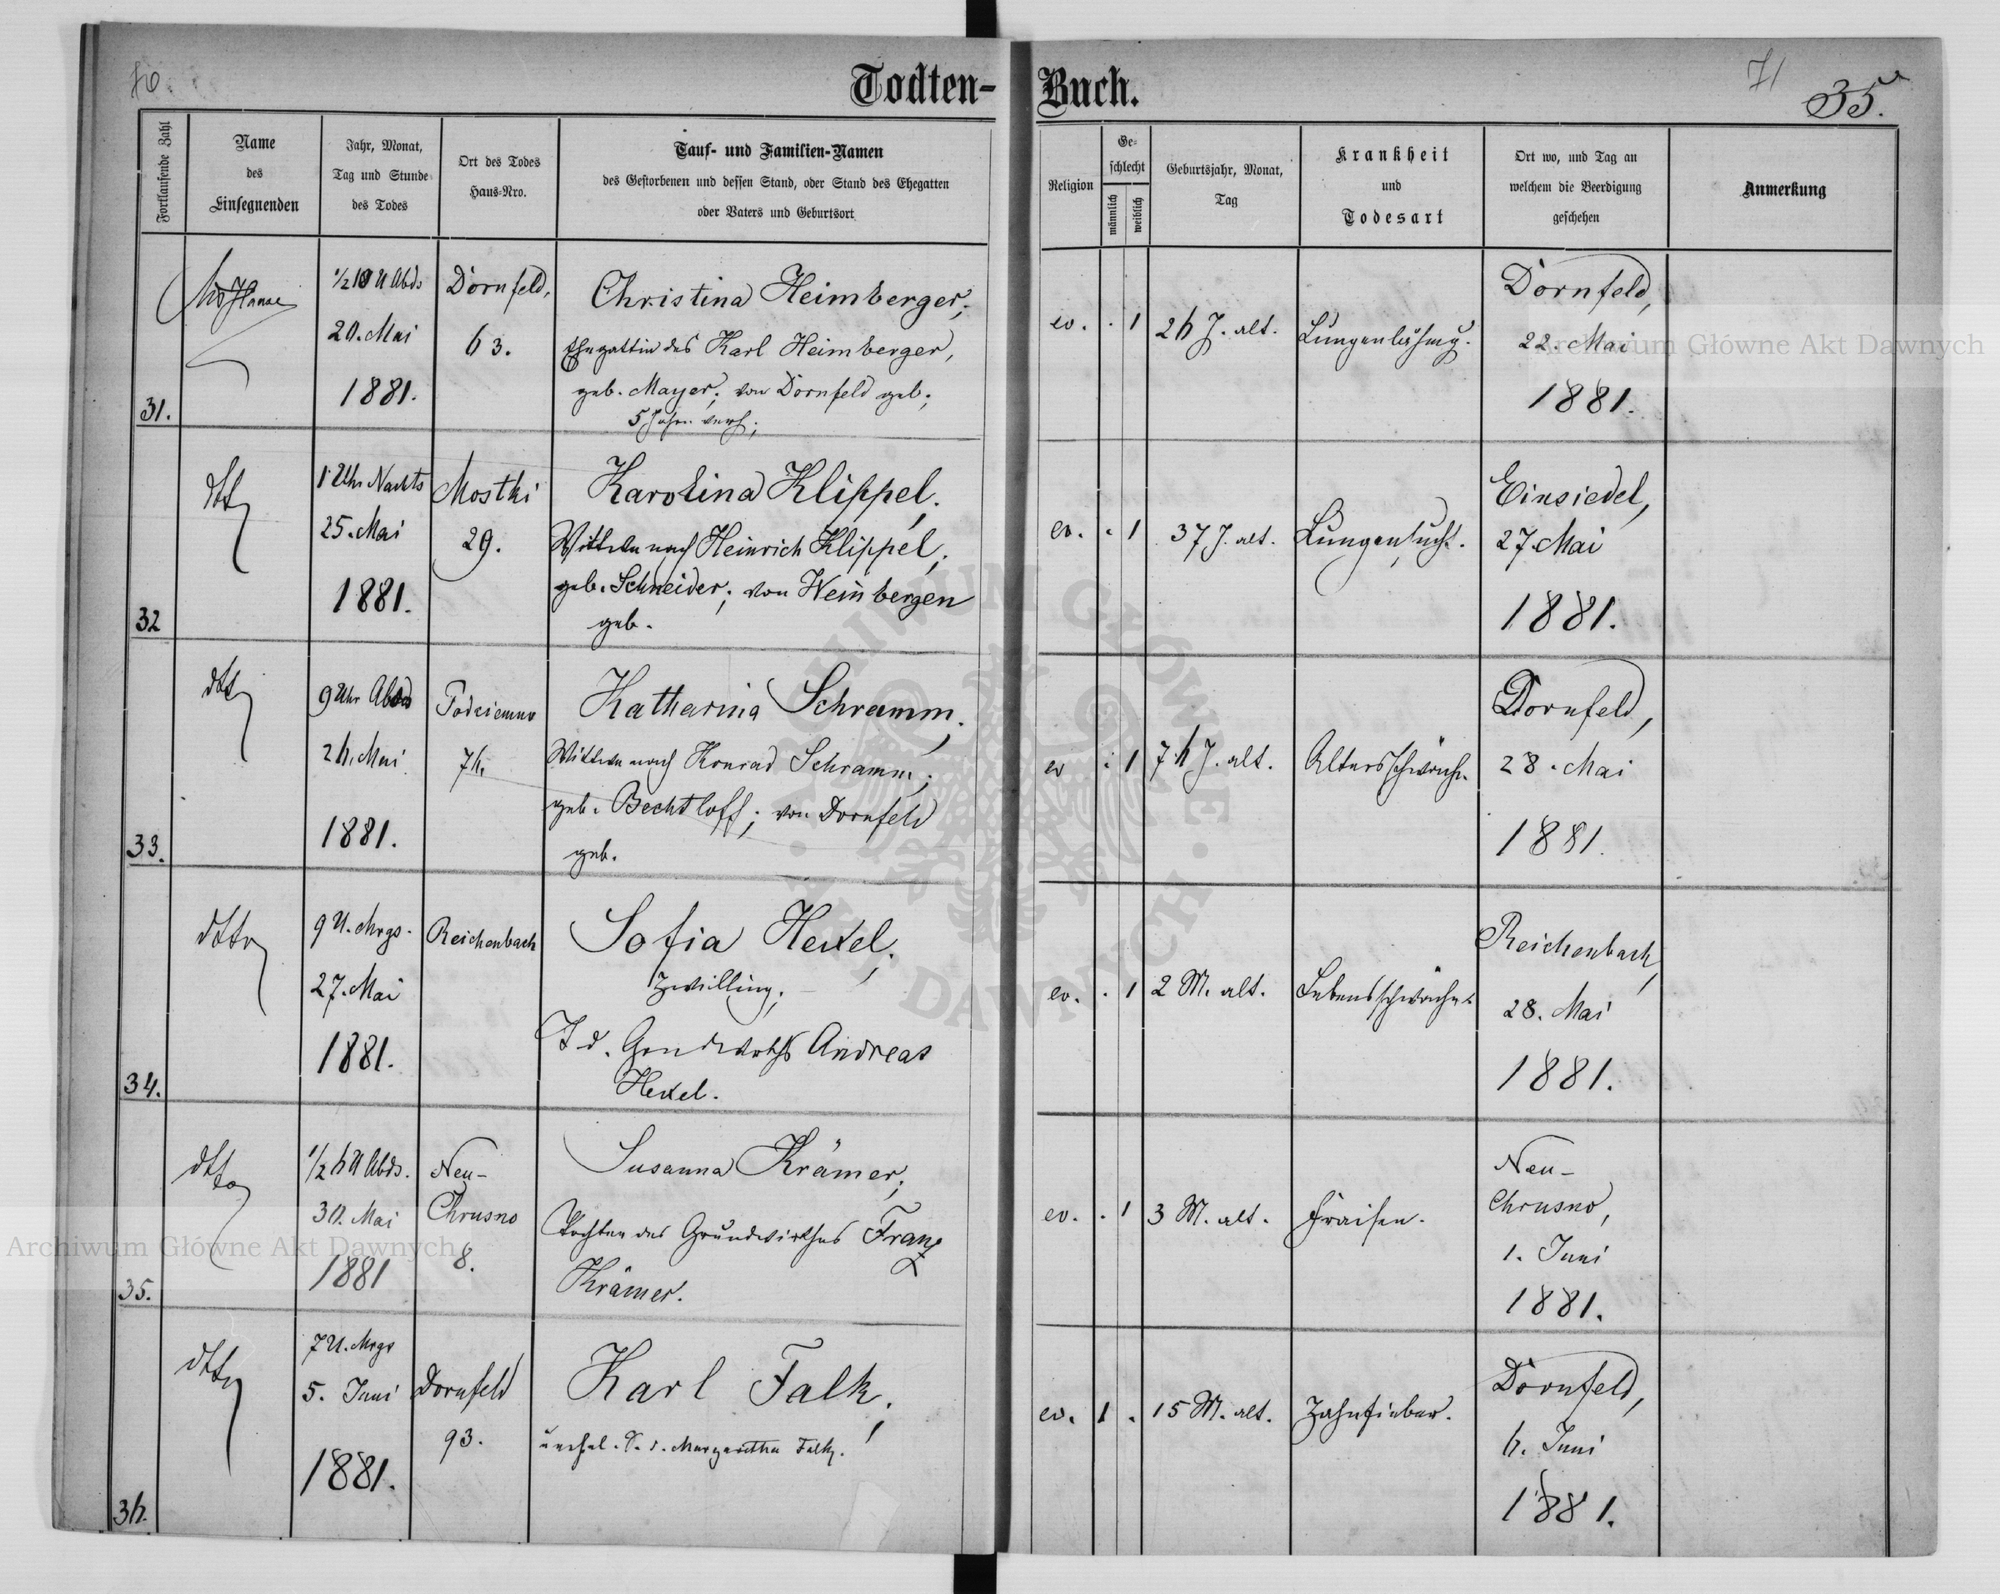 70.
71
35.
Todten-Buch.
Fortlaufende Zahl
Name
des
Einsegnenden
Jahr, Monat,
Tag und Stunde
des Todes
Ort des Todes
Haus-Nro.
Tauf- und Familien-Namen
des Gestorbenen und dessen Stand, oder Stand des Ehegatten
oder Vaters und Geburtsort
Religion
Ge-
schlecht
männlich
weiblich
Geburtsjahr, Monat,
Tag
Krankheit
und
Todesart
Ort wo, und Tag an
welchem die Beerdigung
geschehen
Anmerkung
31.
1/2 10 U Abds
20. Mai
1881.
Dornfeld,
63.
Christina Heimberger;
Ehegattin des Karl Heimberger,
geb. Mayer; von Dornfeld geb;
5 Jahre verh;
ev. . 1
26 J. alt.
Dornfeld,
22. Mai
1881.
32
dtto
1 Uhr Nachts
25. Mai
1881.
Mostki
29.
Karolina Klippel.
Wittwe nach Heinrich Klippel;
geb. Schneider; von Weinbergen
geb.
ev. . 1
37 J. alt.
Lungensucht.
Einsiedel,
27. Mai
1881.
33.
dtto
9 Uhr Abds
26. Mai
1881.
Podciemno
76.
Katharina Schramm.
Wittwe nach Konrad Schramm;
geb. Bechtloff; von Dornfeld
geb.
ev . 1
76 J. alt.
Altersschwäche.
Dornfeld,
28. Mai
1881.
34.
dtto
9 U. Mrgs.
27. Mai
1881.
Reichenbach
Sofia Hexel;
Zwilling;
T. d. Grundwirths Andreas
Hexel.
ev. . 1
2 M. alt.
Lebensschwäche.
Reichenbach,
28. Mai
1881.
35.
dtto
1/2 6 U Abds.
30. Mai
1881
Neu-
Chrusno
8.
Susanna Krämer;
Tochter des Grundwirthes Franz
Krämer.
ev. . 1
3 M. alt.
Fraisen.
Neu-
Chrusno,
1. Juni
1881.
36.
dtto
7 U. Mrgs
5. Juni
1881.
Dornfeld
93.
Karl Falk;
unehel. S. d. Margaretha Falk.
ev. 1 .
15 M. alt.
Zahnfieber.
Dornfeld,
6. Juni
1881.
Archiwum Główne Akt Dawnych
Archiwum Główne Akt Dawnych
ARCHIWUM GŁÓWNE
AKT DAWNYCH